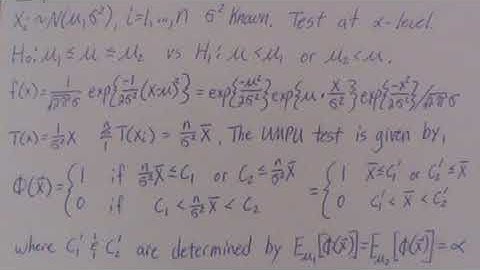 Xᵢ ~ N(μ, σ²), i=1,...,n σ² known. Test at α-level.
H₀: μ₁ ≤ μ ≤ μ₂ vs H₁: μ < μ₁ or μ₂ < μ.
f(x) = 1/(√2π σ) exp{-1/(2σ²) (x-μ)²} = exp{-μ²/(2σ²)} exp{μ · x/σ²} exp{-x²/(2σ²)}/√2π σ
T(x) = 1/σ² X Σ₁ⁿ T(xᵢ) = n/σ² X̄. The UMPU test is given by,
Φ(x⃗) = { 1 if n/σ² X̄ ≤ C₁ or C₂ ≤ n/σ² X̄ = { 1 X̄ ≤ C₁' or C₂' ≤ X̄
0 if C₁ < n/σ² X̄ < C₂ 0 C₁' < X̄ < C₂'
where C₁' & C₂' are determined by E_μ₁[Φ(x⃗)] = E_μ₂[Φ(x⃗)] = α